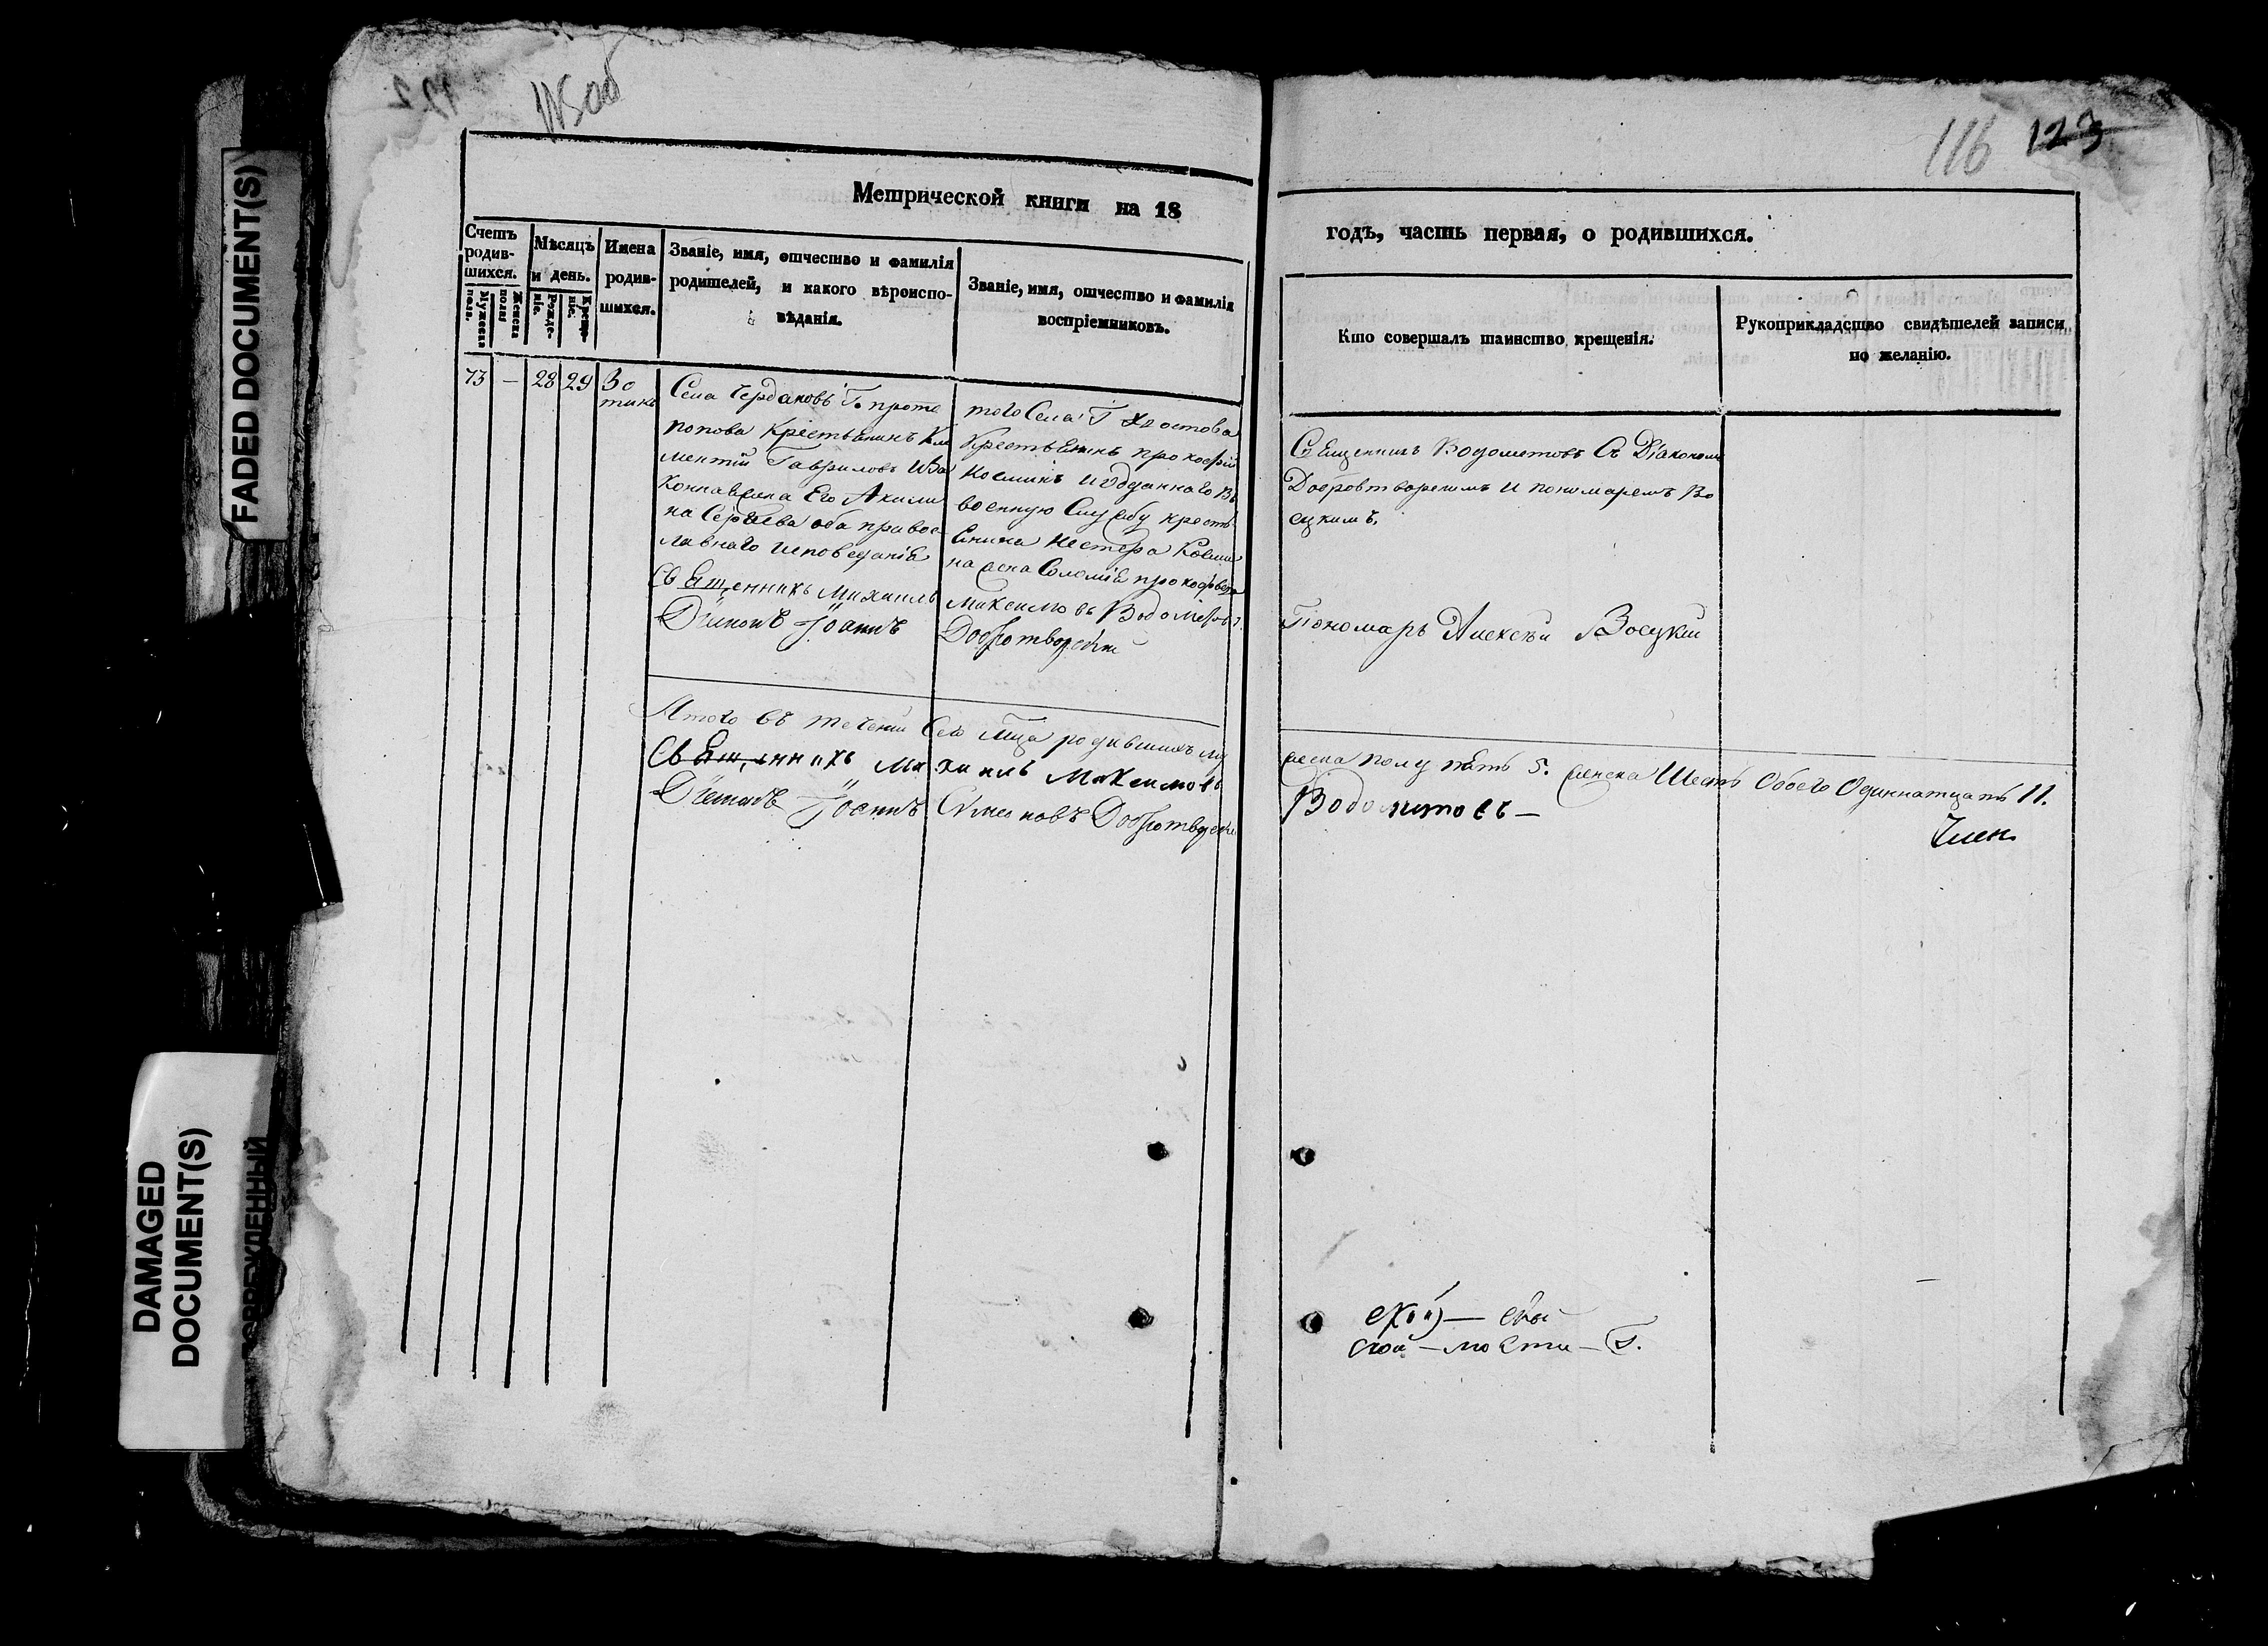 115 об
116 123
Метрической книги на 18
годъ, часть первая, о родившихся.
Счетъ родив-шихся.
Мужеска полъ.
Женска полъ.
Мѣсяцъ и день.
Рожде-ніе.
Креще-ніе.
Имена родив-шихся.
Званіе, имя, отчество и фамилія
родителей, и какого вѣроиспо-
вѣданія.
Званіе, имя, отчество и фамилія
воспріемниковъ.
Кто совершалъ таинство крещенія.
Рукоприкладство свидѣтелей записи
по желанію.
73 — 28 29
Зо
тикъ
Села Чердаковъ Г. прото
попова Крестьянинъ Кли
ментій Гавриловъ и за
коннавенна Его Акили
на Сергѣева оба правос
лавнаго исповеданія
Священникъ Михаилъ
Діаконъ Іоаннъ
того Села Г Хвостова
Крестьянинъ прокофій
Косминъ и отданнаго въ
военную Службу кресть
янина Нестера Косми
на жена Соломія прокофьева
Максимовъ Водометовъ
Добротворскій
Священникъ Водометовъ Съ Діакономъ
Добротворскимъ и пономаремъ Во
ецкимъ.
Пономарь Алексѣй Воецкій
Итого въ теченіи Сего м-ца родившихъ му
жеска полу пять 5. женска Шесть Обоего Одиннатцать 11.
Священникъ Михаилъ Максимовъ
Водометовъ —
Діаконъ Іоаннъ Симеоновъ Добротворскій
Член
ской — мости —
FADED DOCUMENT(S)
DAMAGED
DOCUMENT(S)